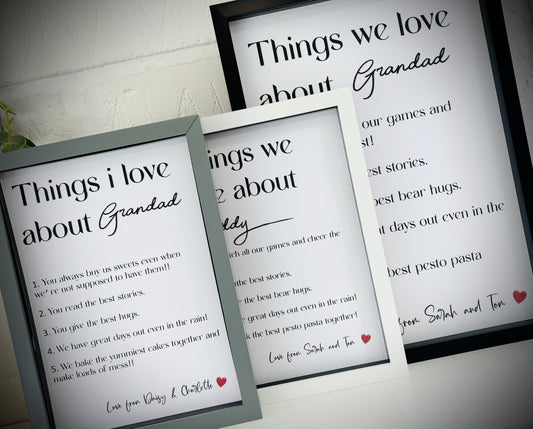 Things i love
about Grandad
1. You always buy us sweets even when
we're not supposed to have them!!
2. You read the best stories.
3. You give the best hugs.
4. We have great days out even in the rain!
5. We bake the yummiest cakes together and
make loads of mess!!
Love from Daisy & Charlotte
ings we
e about
ddy
tch all our games and cheer the
he best stories.
the best bear hugs.
great days out even in the rain!
k the best pesto pasta together!
Love from Sarah and Tom
Things we love
about Grandad
our games and
st!
est stories.
best bear hugs.
t days out even in the
best pesto pasta
from Sarah and Tom